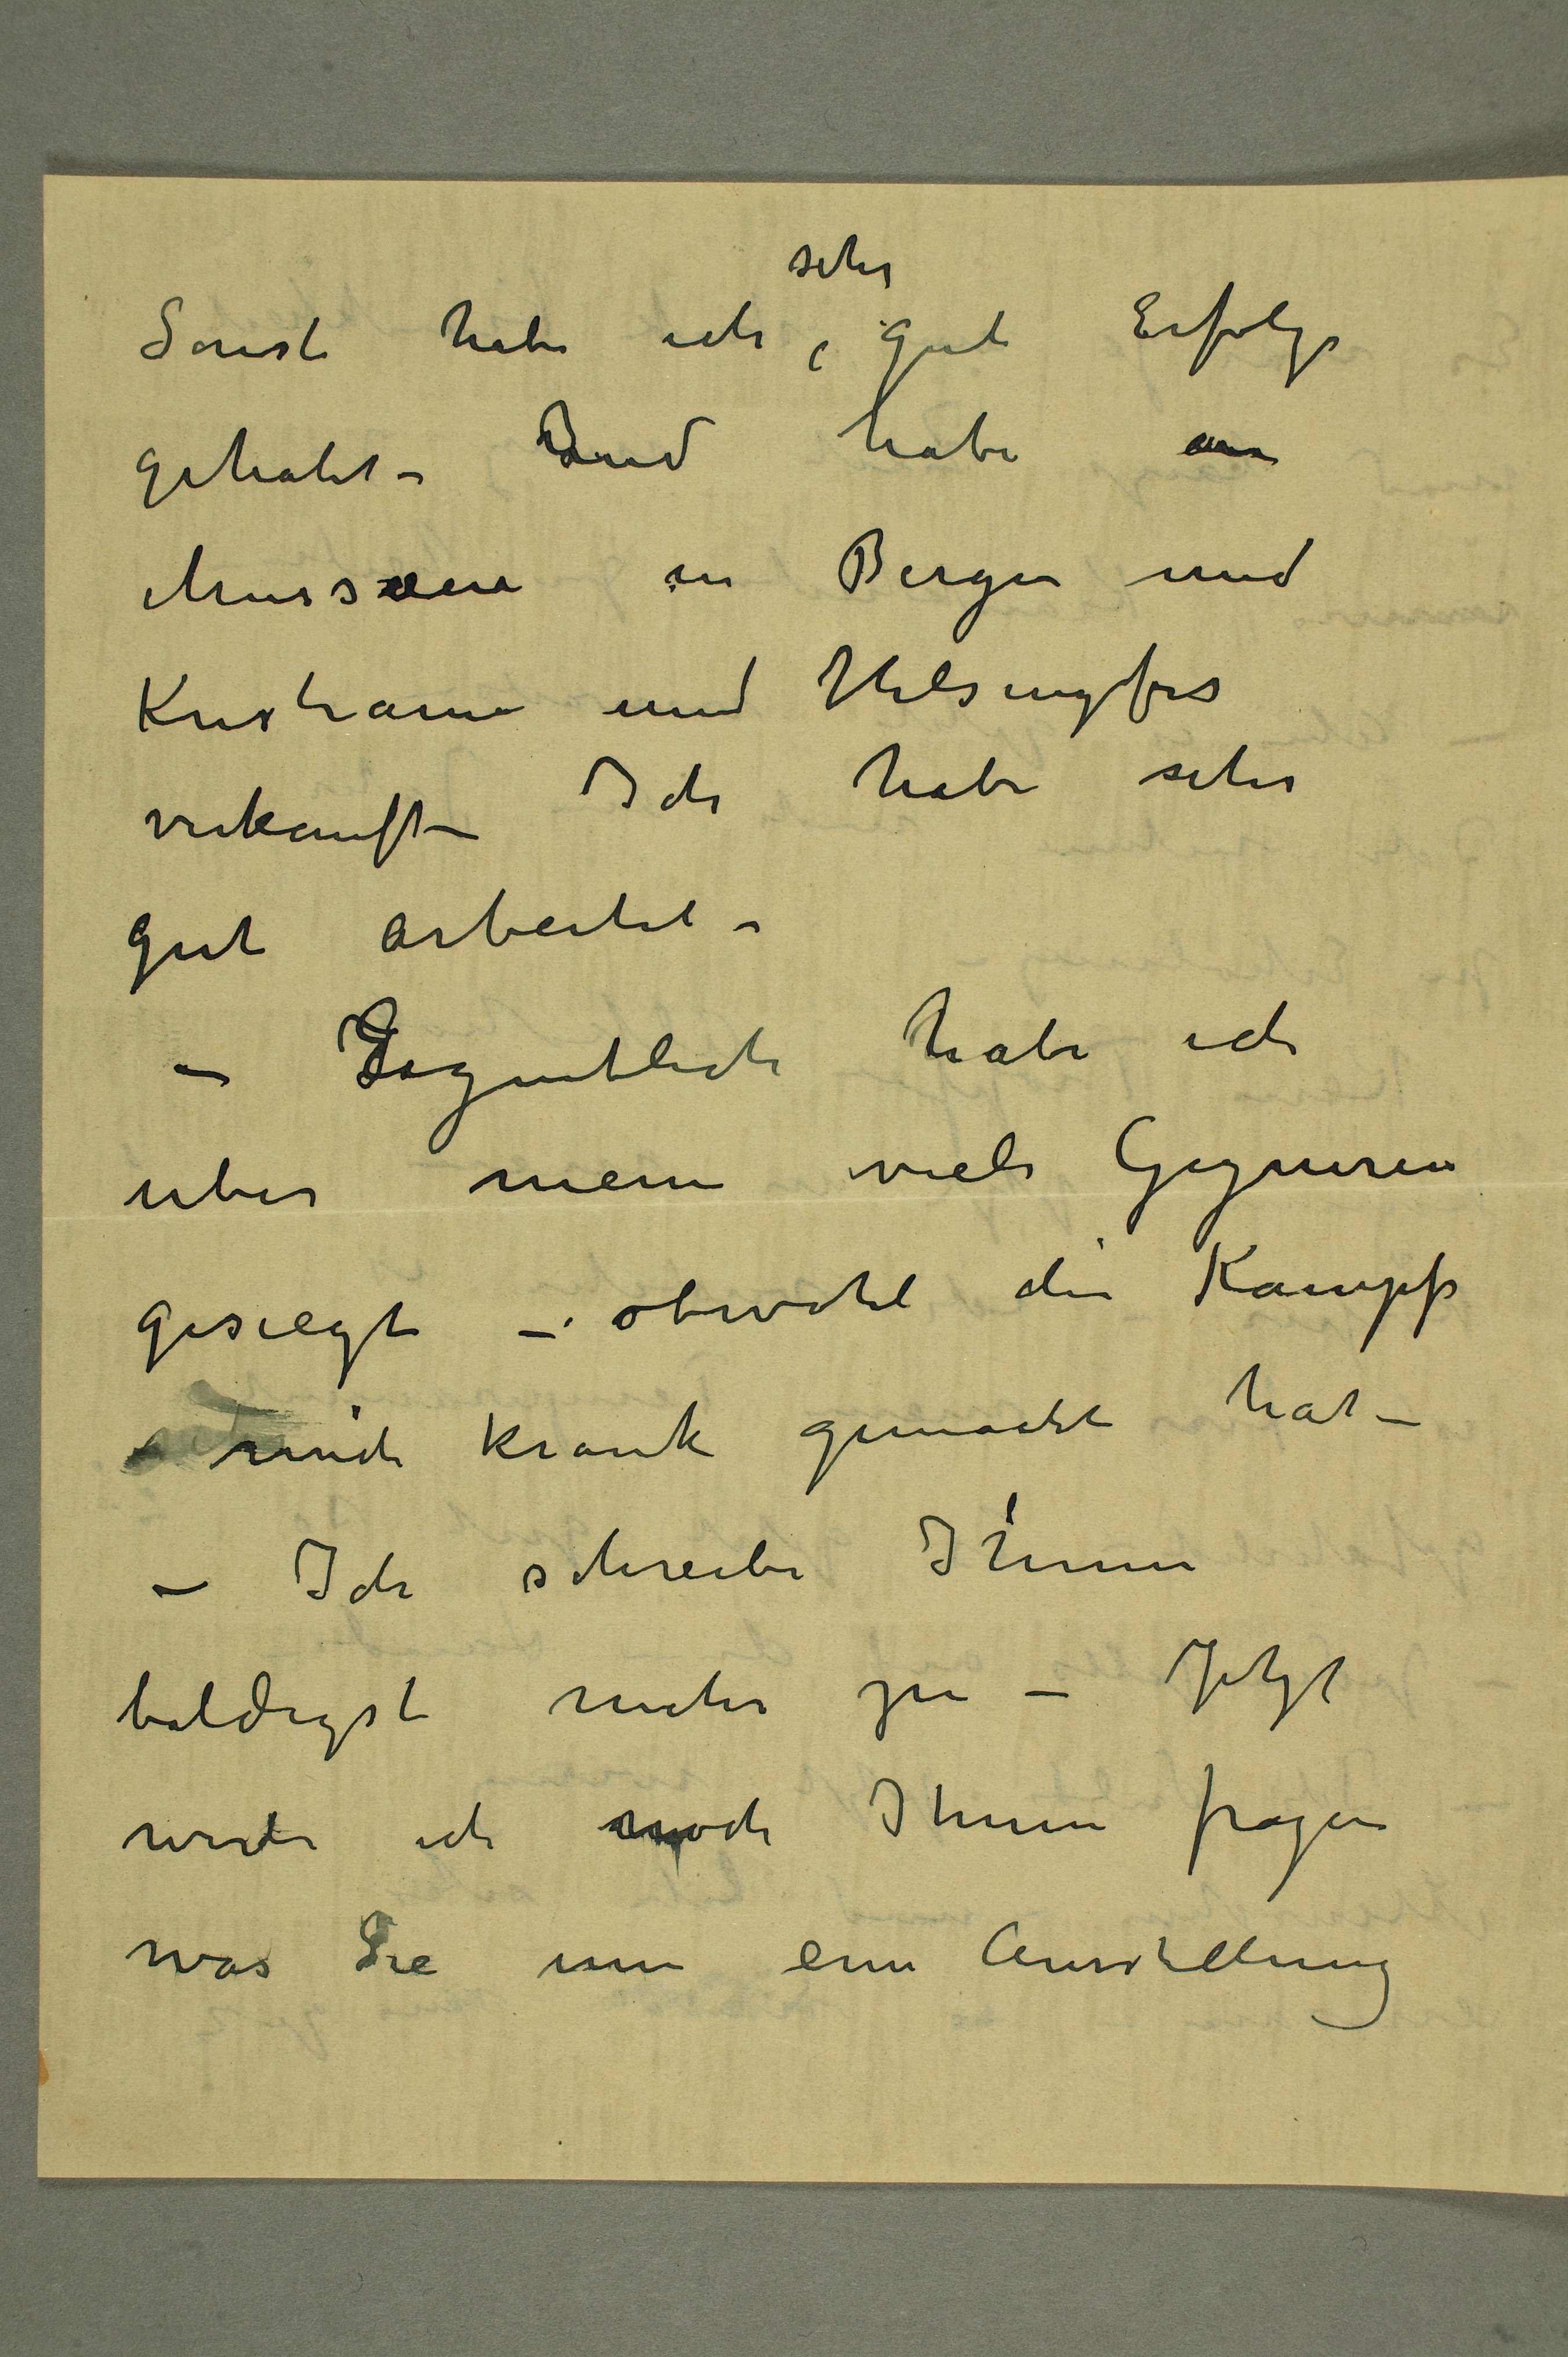 sehr
Sonst habe ich gute Erfolge
gehabt – Und habe
Musseen in Bergen und
Kristiania und Helsingfors
verkauft – Ich habe sehr
gut arbeitet –
– Eigentlich habe ich
uber meine viele Gegneren
gesiegt – obwohl die Kampfe
mich krank gemacht hat –
– Ich schreibe Ihnen
baldigst mehr zu – Jetzt
werde ich noch Ihnen fragen
was Sie um eine Ausstellung